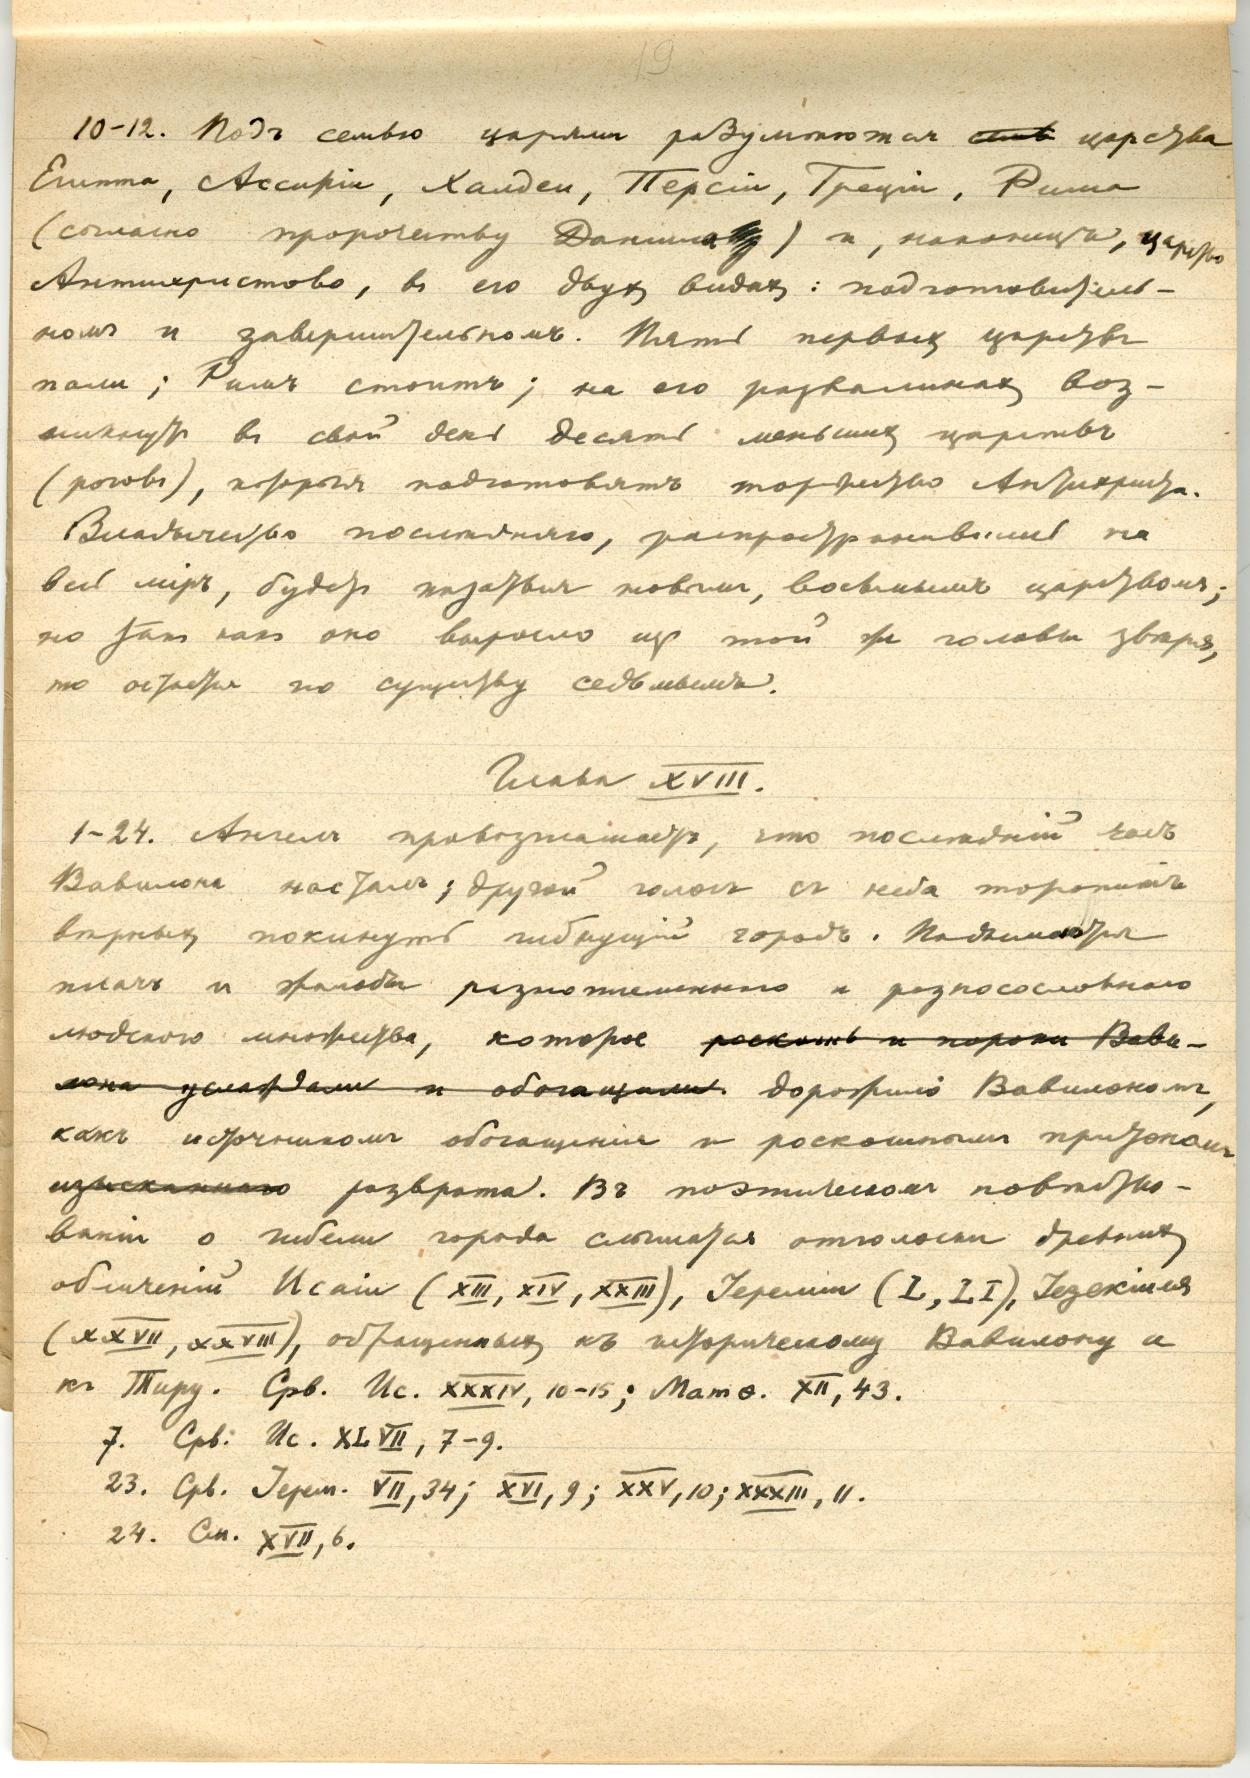 19
10-12. Подъ семью царями разумѣются семь царства
Египта, Ассиріи, Халдеи, Персіи, Греціи, Рима
(согласно пророчеству Даніила) и, наконецъ, царство
Антихристово, въ его двухъ видахъ: подготовитель-
номъ и завершительномъ. Пять первыхъ царствъ
пали; Римъ стоитъ; на его развалинахъ воз-
никнутъ въ свой день десять меньшихъ царствъ
(роговъ), которыя подготовятъ торжество Антихриста.
Владычество послѣдняго, распространившись на
весь міръ, будетъ казаться новымъ, восьмымъ царствомъ;
но такъ какъ оно выросло изъ той же головы звѣря,
то остается по существу седьмымъ.
Глава XVIII.
1-24. Ангелъ провозглашаетъ, что послѣдній часъ
Вавилона насталъ; другой голосъ съ неба торопитъ
вѣрныхъ покинуть гибнущій городъ. Поднимается
плачъ и жалобы разноплеменнаго и разносословнаго
людского множества, которое роскошь и пороки Вави-
лона услаждали и обогащали. дорожило Вавилономъ,
какъ источникомъ обогащенія и роскошнымъ притономъ
изысканнаго разврата. Въ поэтическомъ повѣство-
ваніи о гибели города слышатся отголоски древнихъ
обличеній Исаіи (XIII, XIV, XXIII), Іереміи (L, LI), Іезекіиля
(XXVII, XXVIII), обращенныхъ къ историческому Вавилону и
къ Тиру. Срв. Ис. XXXIV, 10-15; Матѳ. XII, 43.
7. Срв. Ис. XLVII, 7-9.
23. Срв. Іерем. VII, 34; XVI, 9; XXV, 10; XXXIII, 11.
24. См. XVII, 6.